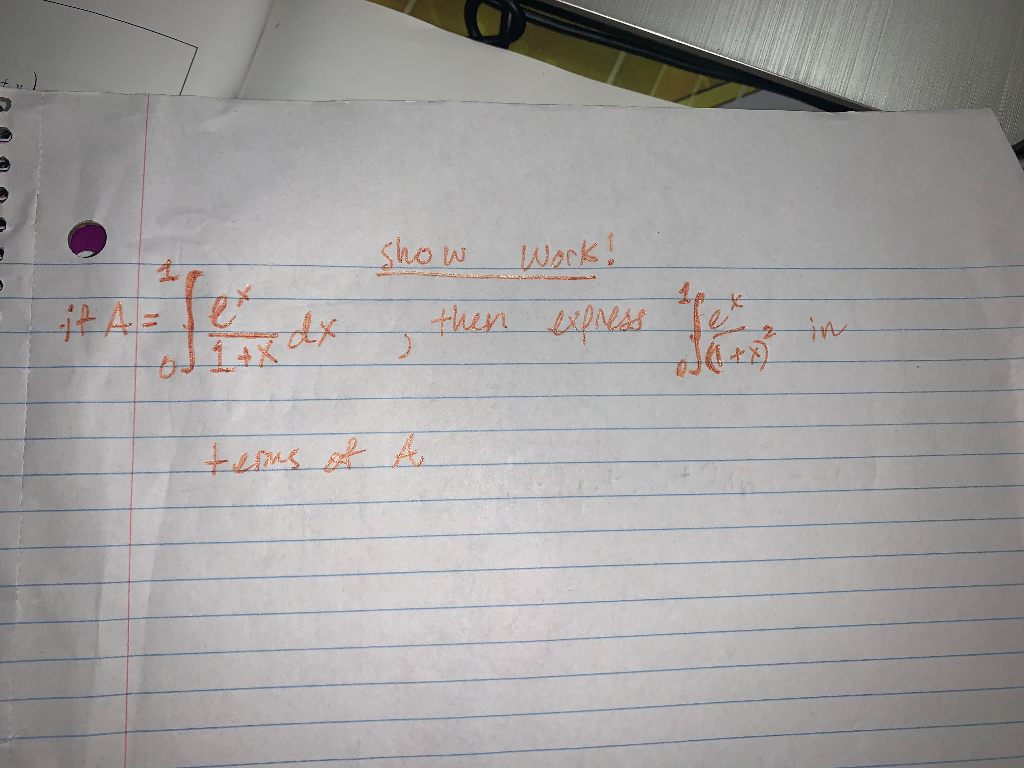 show work!
if A = ∫₀¹ eˣ/(1+x) dx , then express ∫₀¹ eˣ/(1+x)² in
terms of A